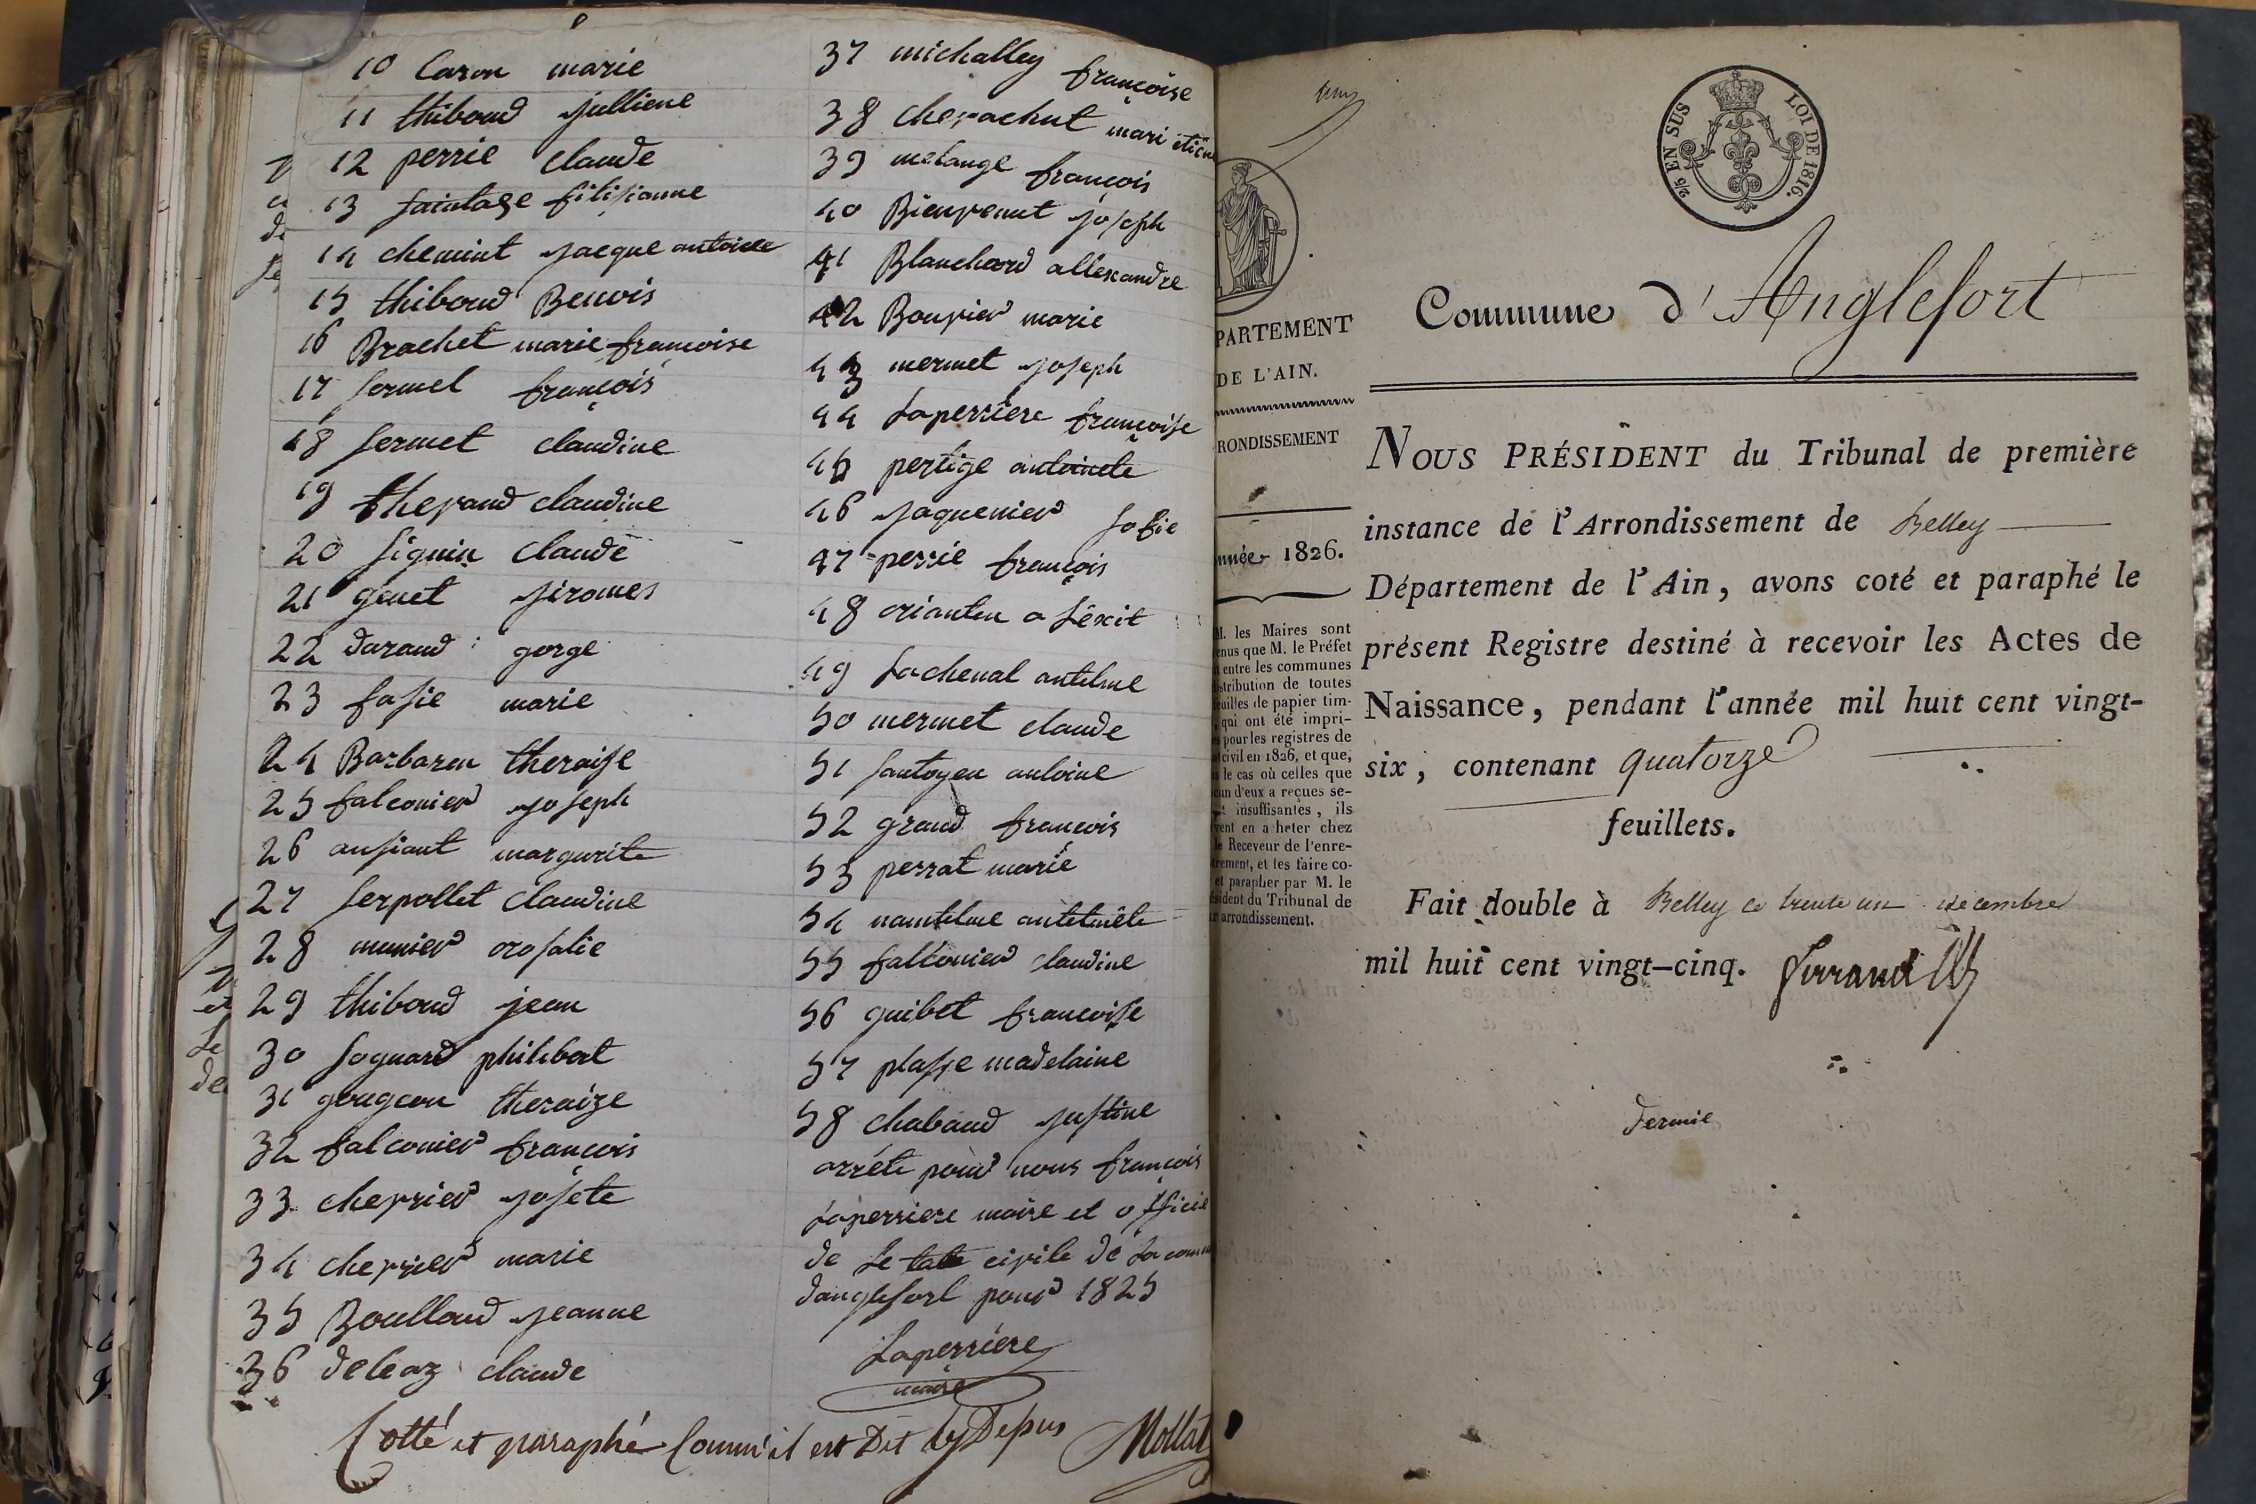 10 Caron marie
11 thiboud julliene
12 perrie claude
13 saintage filisianne
14 chemint jacque antoine
15 thiboud Benois
16 Brachet marie françoise
17 sermet françois
18 sermet claudine
19 thevand claudine
20 siguin claude
21 genet jiromes
22 durand gorge
23 fasie marie
24 Barbaren theraise
25 falconier joseph
26 ansiant margurite
27 serpollet claudine
28 munier orosalie
29 thiboud jean
30 soguard philibert
31 gougeon theraize
32 falconier francois
33 chevrier josete
34 chevrier marie
35 Boulloud jeanne
36 deleaz claude
37 michalley françoise
38 chevachut mari
39 melange françois
40 Bienvenut joseph
41 Blanchard allexandre
42 Bouvier marie
43 mermet joseph
44 Laperriere françoise
45 pertige antoinete
46 jaguenier sofie
47 perrie françois
48
49 Lachenal antelme
50 mermet claude
51 santoyen antoine
52 grand françois
53 perrat marie
54 namtelme
55 falconier claudine
56 guibet francoise
57 plasse madelaine
58 chabaud justine
arréte pour nous françois
Laperriere maire et officie
de Le tate civile de La comm
danglefort pour 1825
Laperriere
maire
Cotté et paraphé Comm'il est Dit Cy Depus Mollat
2/5 EN SUS LOI DE 1816.
Commune d'Anglefort
PARTEMENT
DE L'AIN.
RONDISSEMENT
nnée 1826.
M. les Maires sont
enus que M. le Préfet
entre les communes
stribution de toutes
euilles de papier tim-
, qui ont été impri-
es pour les registres de
civil en 1826, et que,
s le cas où celles que
cun d'eux a reçues se-
t insuffisantes, ils
vent en a heter chez
le Receveur de l'enre-
trement, et les faire co-
et parapher par M. le
ésident du Tribunal de
arrondissement.
NOUS PRÉSIDENT du Tribunal de première
instance de l'Arrondissement de Belley
Département de l'Ain, avons coté et paraphé le
présent Registre destiné à recevoir les Actes de
Naissance, pendant l'année mil huit cent vingt-
six, contenant quatorze
feuillets.
Fait double à Belley ce trente un decembre
mil huit cent vingt-cinq. Ferrand